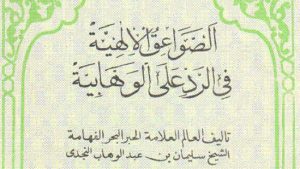 الصواعق الإلهية
في الرد على الوهابية
تأليف العالم العلامة الحبر البحر الفهامة
الشيخ سليمان بن عبد الوهاب النجدي